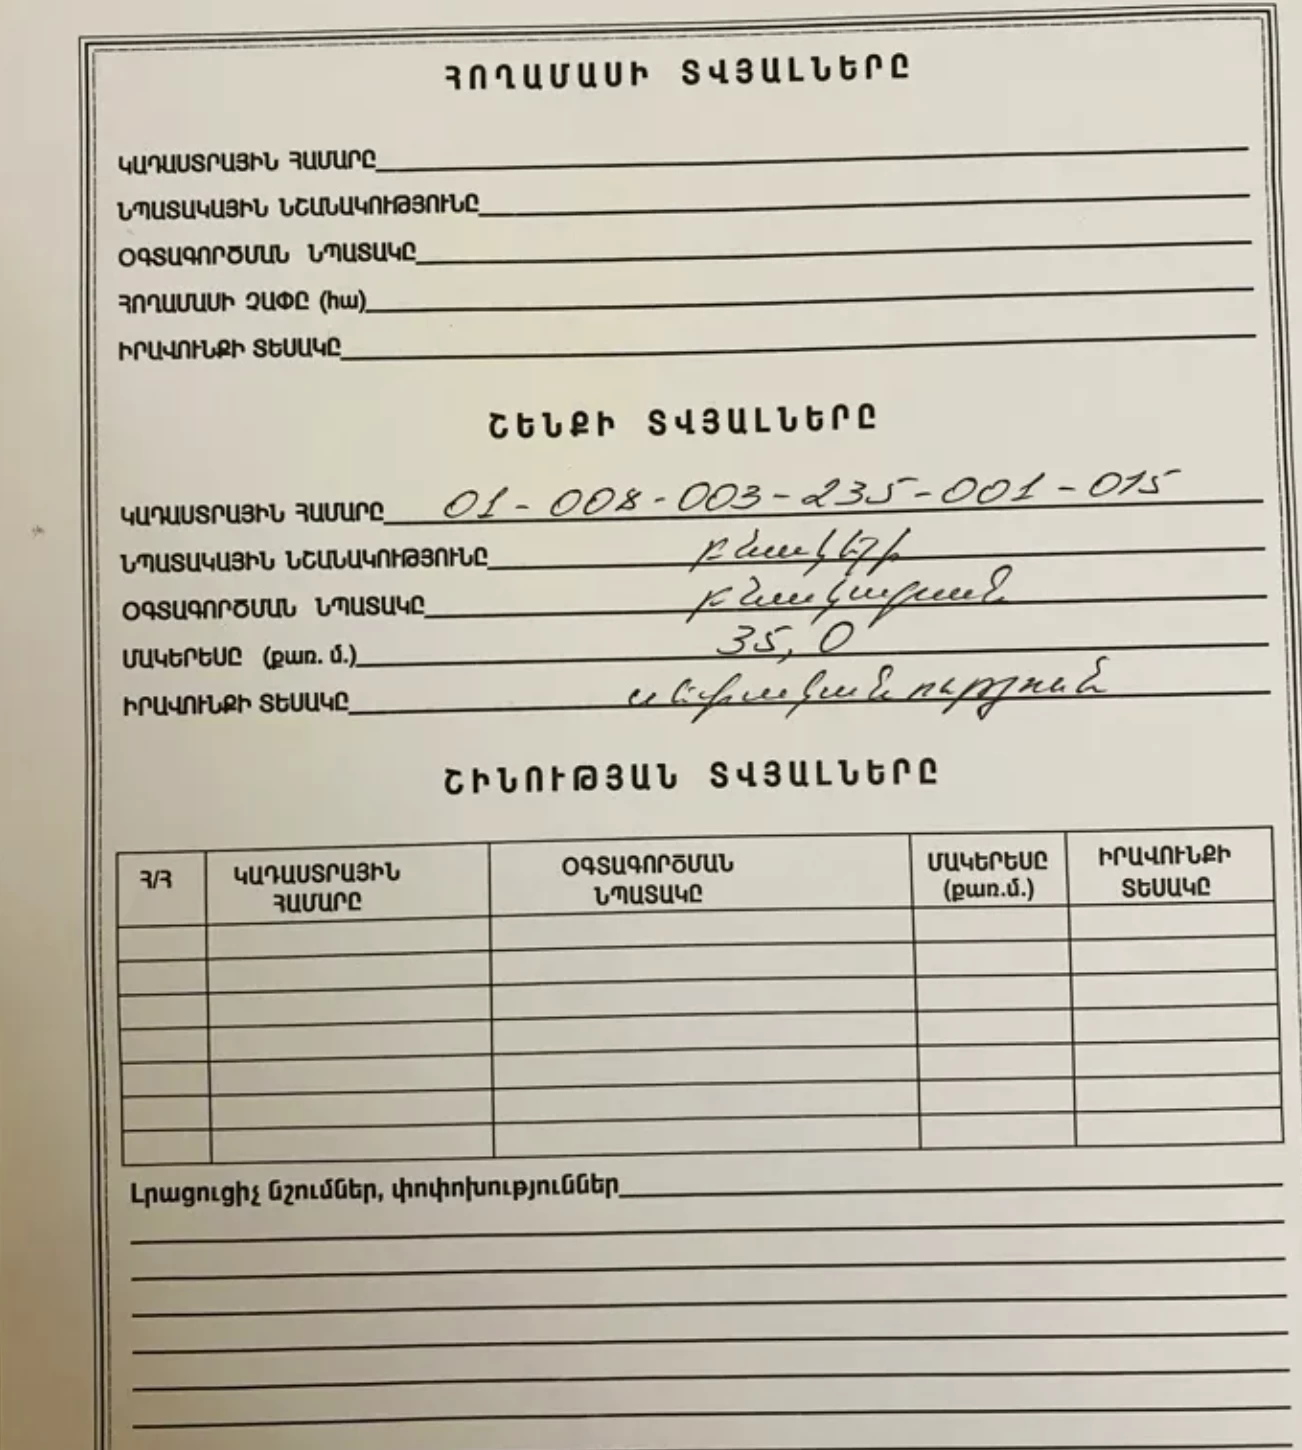 ՀՈՂԱՄԱՍԻ ՏՎՅԱԼՆԵՐԸ
ԿԱԴԱՍՏՐԱՅԻՆ ՀԱՄԱՐԸ
ՆՊԱՏԱԿԱՅԻՆ ՆՇԱՆԱԿՈՒԹՅՈՒՆԸ
ՕԳՏԱԳՈՐԾՄԱՆ ՆՊԱՏԱԿԸ
ՀՈՂԱՄԱՍԻ ՉԱՓԸ (հա)
ԻՐԱՎՈՒՆՔԻ ՏԵՍԱԿԸ
ՇԵՆՔԻ ՏՎՅԱԼՆԵՐԸ
ԿԱԴԱՍՏՐԱՅԻՆ ՀԱՄԱՐԸ 01-008-003-235-001-015
ՆՊԱՏԱԿԱՅԻՆ ՆՇԱՆԱԿՈՒԹՅՈՒՆԸ բնակելի
ՕԳՏԱԳՈՐԾՄԱՆ ՆՊԱՏԱԿԸ բնակարան
ՄԱԿԵՐԵՍԸ (քառ. մ.) 35,0
ԻՐԱՎՈՒՆՔԻ ՏԵՍԱԿԸ սեփականություն
ՇԻՆՈՒԹՅԱՆ ՏՎՅԱԼՆԵՐԸ
Հ/Հ ԿԱԴԱՍՏՐԱՅԻՆ ՀԱՄԱՐԸ ՕԳՏԱԳՈՐԾՄԱՆ ՆՊԱՏԱԿԸ ՄԱԿԵՐԵՍԸ (քառ.մ.) ԻՐԱՎՈՒՆՔԻ ՏԵՍԱԿԸ
Լրացուցիչ նշումներ, փոփոխություններ